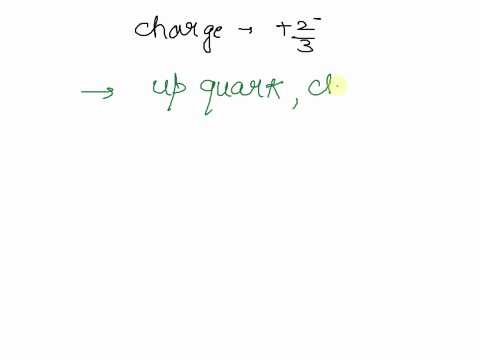 charge → +2/3
→ up quark, ch